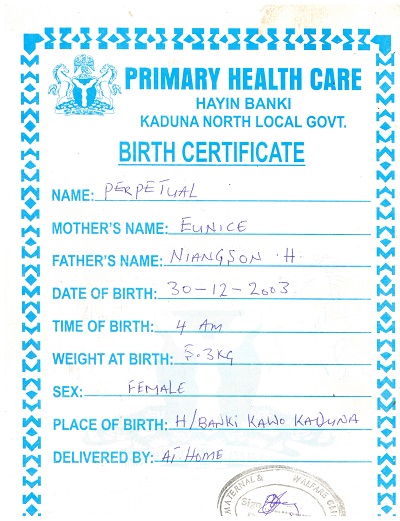 PRIMARY HEALTH CARE
HAYIN BANKI
KADUNA NORTH LOCAL GOVT.
BIRTH CERTIFICATE
NAME: PERPETUAL
MOTHER'S NAME: EUNICE
FATHER'S NAME: NIANGSON .H.
DATE OF BIRTH: 30-12-2003
TIME OF BIRTH: 4 AM
WEIGHT AT BIRTH: 5.3KG
SEX: FEMALE
PLACE OF BIRTH: H/BANKI KAWO KADUNA
DELIVERED BY: AT HOME
MATERNAL & WELFARE
Sign